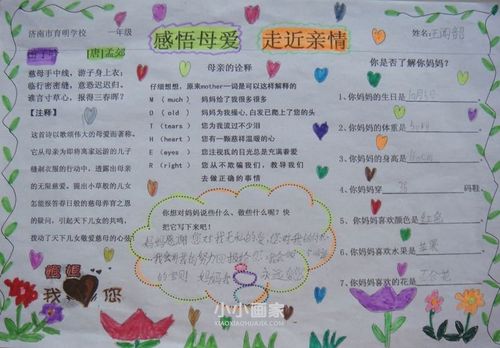 济南市育明学校 一年级
感悟母爱 走近亲情
姓名：
游子吟 [唐]孟郊
慈母手中线，游子身上衣；
临行密密缝，意恐迟迟归。
谁言寸草心，报得三春晖？
【注释】
这首诗以歌颂伟大的母爱而著称，
它从母亲为即将离家远游的儿子
缝制衣服的行动中，透露出母亲
的无限慈爱。提出小草般的儿女
怎能报答春日般的慈母养育之恩
的疑问，引起天下儿女的共鸣，
拨动了天下儿女敬爱慈母的心弦
妈妈
我 您
母亲的诠释
仔细想想，原来mother一词是可以这样解释的
M （much） 妈妈给了我很多很多
O （old） 妈妈为我操心，白发已爬上了您的头
T （tears） 您为我流过不少泪
H （heart） 您有一颗慈祥温暖的心
E （eyes） 您注视我的目光总是充满着爱
R （right） 您从不欺骗我们，教导我们
去做正确的事情
你想对妈妈说些什么、做些什么呢？快
把它写下来吧！
妈妈感谢您对我无私的爱，您对我的
你是否了解你妈妈？
1、你妈妈的生日是
2、你妈妈的体重是
3、你妈妈的身高是
4、你妈妈穿 36 码鞋
5、你妈妈喜欢颜色是 红色
6、你妈妈喜欢水果是 苹果
7、你妈妈喜欢的花是
小小画家
XIAOXIAOHUAJIA.COM